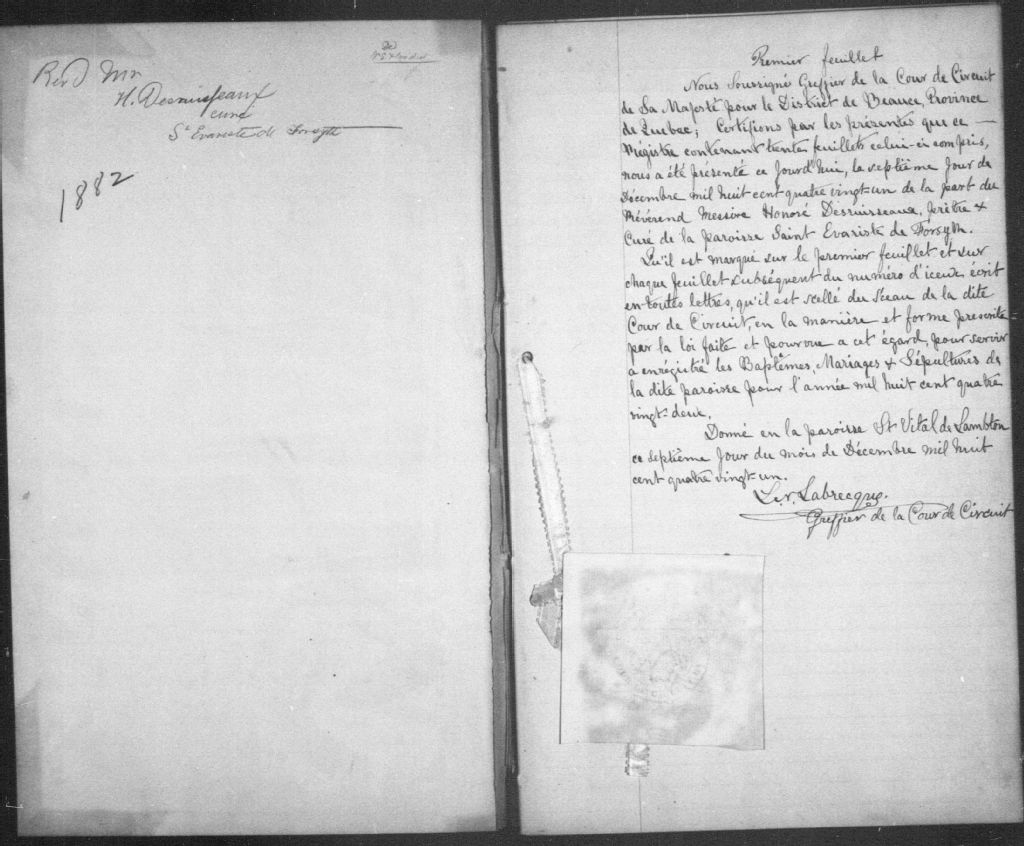 Revd Mr
H. Desruisseaux
curé
St Evariste de Forsyth
1882
Premier feuillet
Nous Soussigné Greffier de la Cour de Circuit
de Sa Majesté pour le District de Beauce, Province
de Quebec; Certifions par les présentes que ce
Régistre contenant trente feuillets celui-ci compris,
nous a été présenté ce Jourd'hui, le septième Jour de
Décembre mil huit cent quatre vingt-un de la part du
Révérend Messire Honoré Desruisseaux, prêtre &
Curé de la paroisse Saint Evariste de Forsyth.
Qu'il est marqué sur le premier feuillet et sur
chaque feuillet subséquent du numéro d'iceux écrit
en toutes lettres, qu'il est scellé du Sceau de la dite
Cour de Circuit, en la manière et forme prescrite
par la loi faite et pourvue a cet égard, pour servir
a enrégistré les Baptêmes, Mariages & Sépultures de
la dite paroisse pour l'année mil huit cent quatre
vingt-deux.
Donné en la paroisse St Vital de Lambton
ce septième Jour du mois de Décembre mil huit
cent quatre vingt-un.
Labrecque.
Greffier de la Cour de Circuit